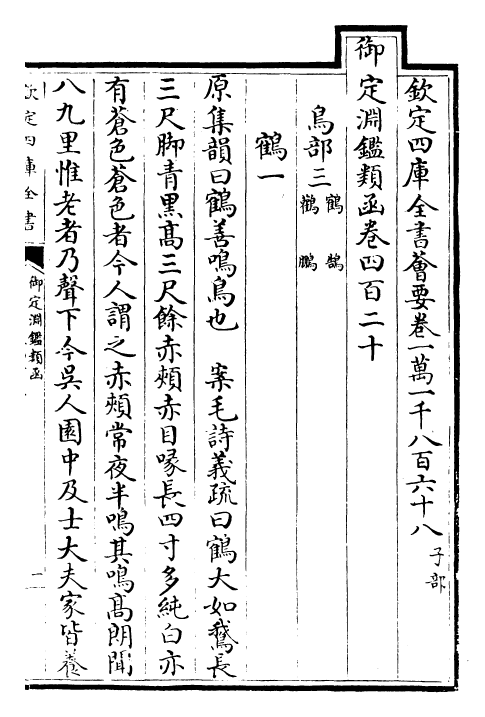 欽定四庫全書薈要卷一萬一千八百六十八 子部
御定淵鑑類函卷四百二十
鳥部三 鶴 鵠 鸛 鵬
鶴一
原集韻曰鶴善鳴鳥也 案毛詩義疏曰鶴大如鵞長
三尺脚青黒髙三尺餘赤頰赤目喙長四寸多純白亦
有蒼色蒼色者今人謂之赤頰常夜半鳴其鳴髙朗聞
八九里惟老者乃聲下今吳人園中及士大夫家皆養
欽定四庫全書
御定淵鑑類函
一